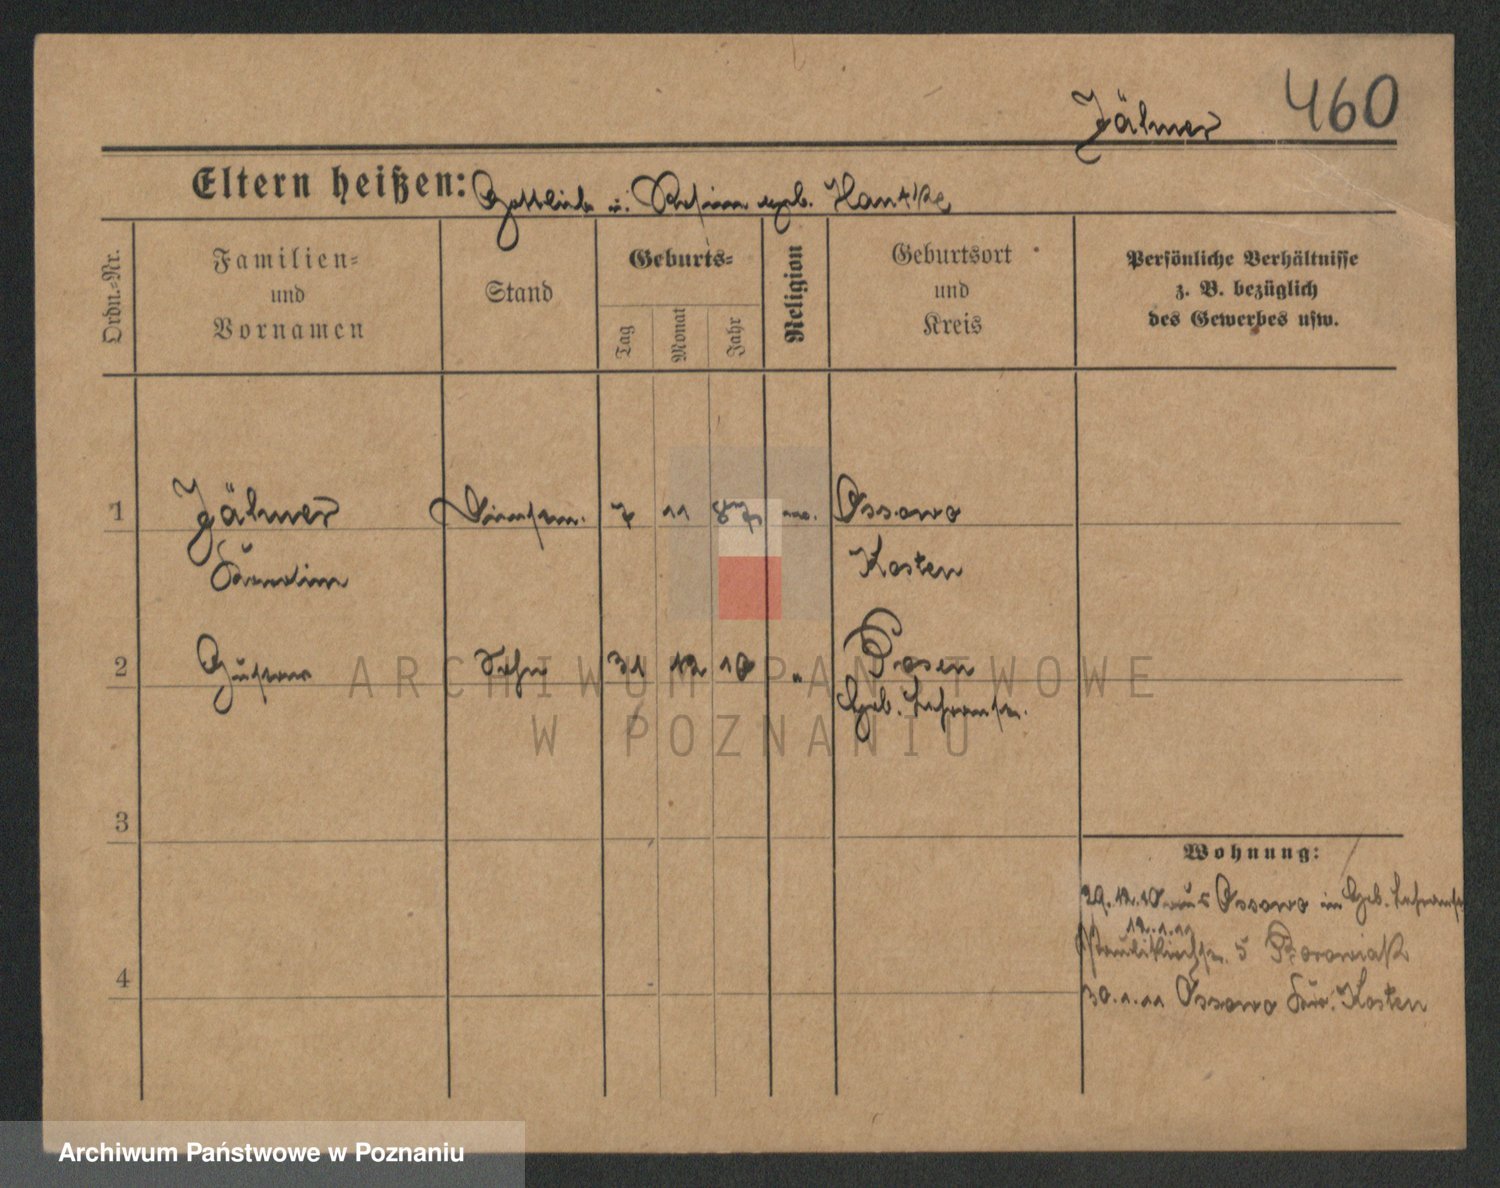 460
Jähner
Eltern heißen: Gottlieb u. geb. Hantke
Ordn.-Nr.
Familien-
und
Vornamen
Stand
Geburts-
Tag
Monat
Jahr
Religion
Geburtsort
und
Kreis
Persönliche Verhältnisse
z. B. bezüglich
des Gewerbes usw.
1 Jähner 7 11 Ossowo
Kosten
2 Gustav Sohn 31 12 10 " Posen
Geb.
3
4
Wohnung:
29.12.10 aus Ossowo in Geb.
12.1.11
5
30.1.11 Ossowo Kosten
ARCHIWUM PAŃSTWOWE
W POZNANIU
Archiwum Państwowe w Poznaniu